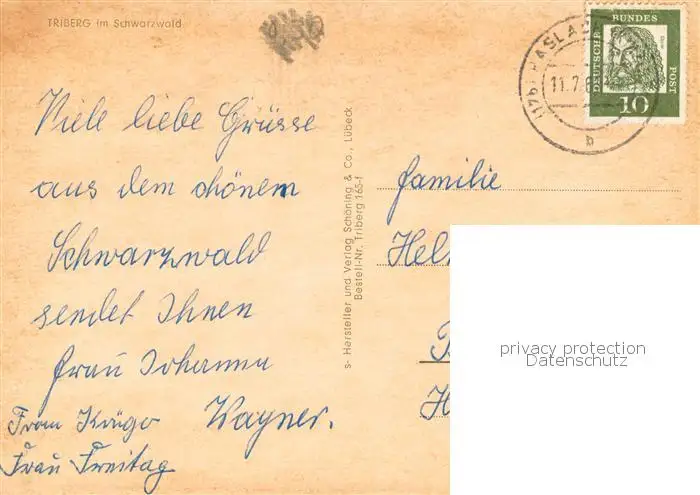 TRIBERG im Schwarzwald
Viele liebe Grüsse
aus dem schönem
Schwarzwald
sendet Ihnen
Frau Johanna
Wagner.
Frau
Frau Freitag
s- Hersteller und Verlag Schöning & Co., Lübeck
Bestell-Nr. Triberg 165-f
(17b) HASLA
11.7.6
b
DEUTSCHE
BUNDES
POST
10
Familie
Hel
H
privacy protection
Datenschutz